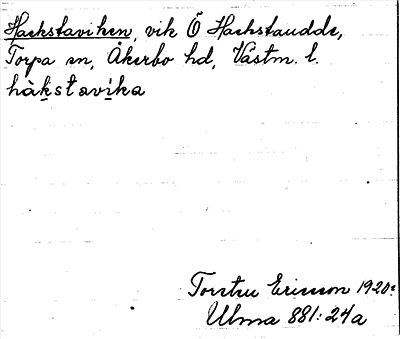 Hackstaviken, vik Ö Hackstaudde,
Torpa sn, Åkerbo hd, Västm. l.
hàkstavíka
Torsten Ericsson 1920:
Ulma 881:24a